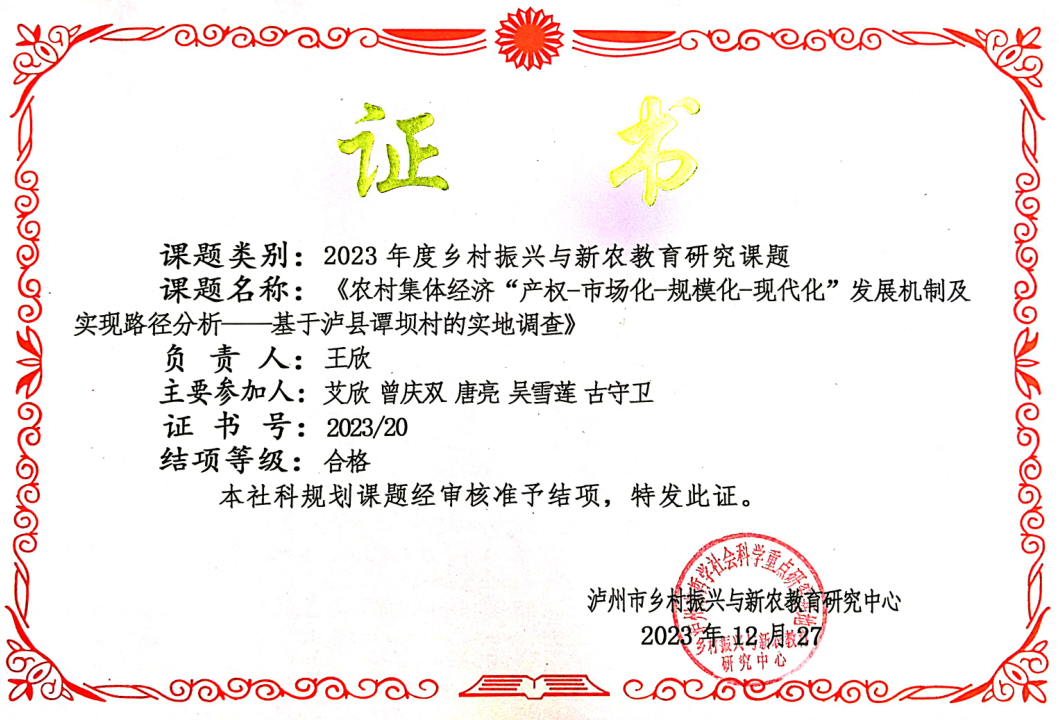 证 书
课题类别：2023 年度乡村振兴与新农教育研究课题
课题名称：《农村集体经济“产权-市场化-规模化-现代化”发展机制及
实现路径分析——基于泸县谭坝村的实地调查》
负 责 人：王欣
主要参加人：艾欣 曾庆双 唐亮 吴雪莲 古守卫
证 书 号：2023/20
结项等级：合格
本社科规划课题经审核准予结项，特发此证。
泸州市哲学社会科学重点研究基地
泸州市乡村振兴与新农教育研究中心
2023 年 12 月 27
乡村振兴与新农教育
研究中心